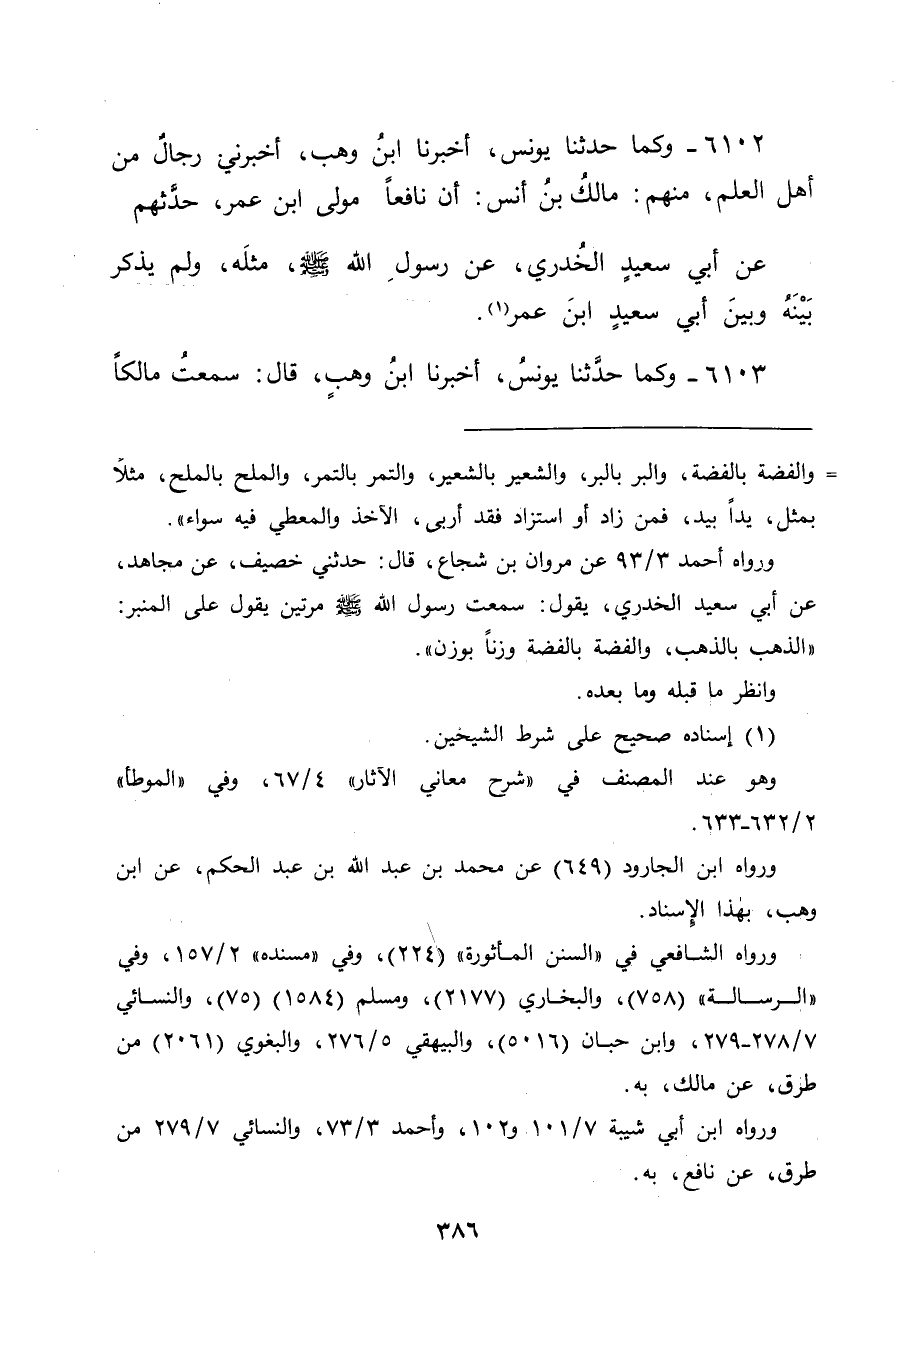 ٦١٠٢ـ وكما حدثنا يونس، أخبرنا ابنُ وهب، أخبرني رجالٌ من
أهل العلم، منهم: مالكُ بنُ أنس: أن نافعاً مولى ابن عمر، حدَّثهم
عن أبي سعيدٍ الخُدري، عن رسولِ الله ﷺ، مثلَه، ولم يذكر
بَيْنَهُ وبينَ أبي سعيدٍ ابنَ عمر(١).
٦١٠٣ـ وكما حدَّثنا يونسُ، أخبرنا ابنُ وهبٍ، قال: سمعتُ مالكاً
= والفضة بالفضة، والبر بالبر، والشعير بالشعير، والتمر بالتمر، والملح بالملح، مثلاً
بمثل، يداً بيد، فمن زاد أو استزاد فقد أربى، الآخذ والمعطي فيه سواء».
ورواه أحمد ٩٣/٣ عن مروان بن شجاع، قال: حدثني خصيف، عن مجاهد،
عن أبي سعيد الخدري، يقول: سمعت رسول الله ﷺ مرتين يقول على المنبر:
«الذهب بالذهب، والفضة بالفضة وزناً بوزن».
وانظر ما قبله وما بعده.
(١) إسناده صحيح على شرط الشيخين.
وهو عند المصنف في «شرح معاني الآثار» ٦٧/٤، وفي «الموطأ»
٦٣٢/٢ـ٦٣٣.
ورواه ابن الجارود (٦٤٩) عن محمد بن عبد الله بن عبد الحكم، عن ابن
وهب، بهٰذا الإسناد.
ورواه الشافعي في «السنن المأثورة» (٢٢٤)، وفي «مسنده» ١٥٧/٢، وفي
«الرسالة» (٧٥٨)، والبخاري (٢١٧٧)، ومسلم (١٥٨٤) (٧٥)، والنسائي
٢٧٨/٧ـ٢٧٩، وابن حبان (٥٠١٦)، والبيهقي ٢٧٦/٥، والبغوي (٢٠٦١) من
طرق، عن مالك، به.
ورواه ابن أبي شيبة ١٠١/٧ و١٠٢، وأحمد ٧٣/٣، والنسائي ٢٧٩/٧ من
طرق، عن نافع، به.
٣٨٦